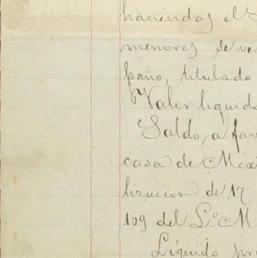 haciendas el
menores se ve
paño, titulado
Valor liquido
Saldo, a fav
casa de Mex
bracion de 17
109 del L.º M
Líquido pr